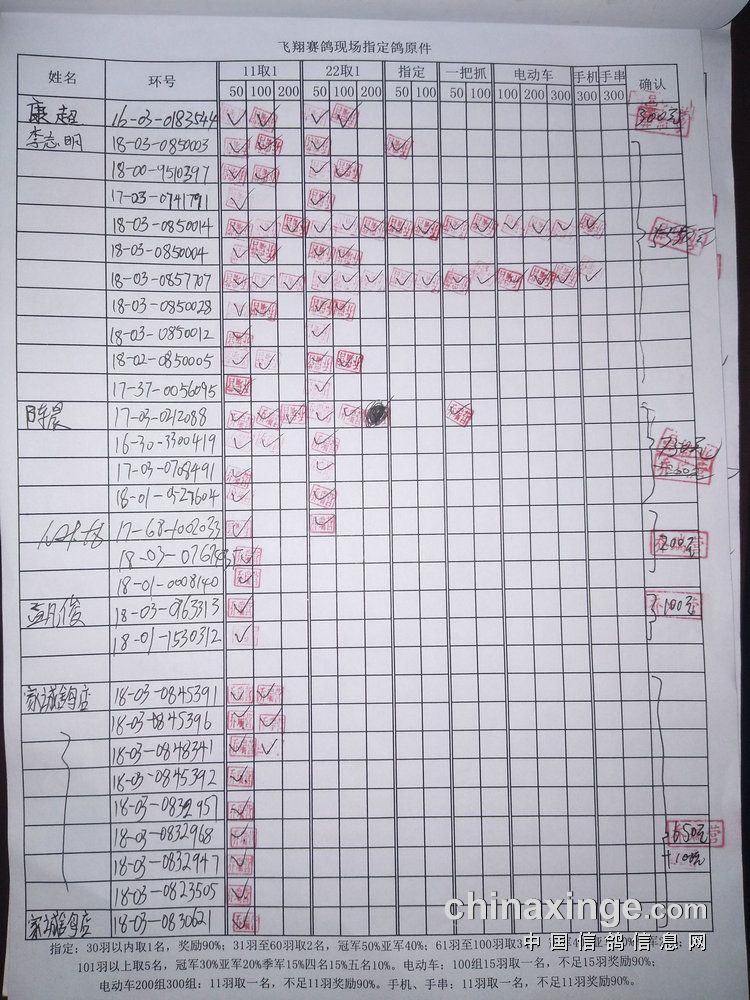 飞翔赛鸽现场指定鸽原件
姓名 环号 11取1 22取1 指定 一把抓 电动车 手机 手串 确认
50 100 200 50 100 200 50 100 50 100 100 200 300 300 300
康超 16-03-0183544 300元
李志明 18-03-0850003
18-00-9510397
17-03-0741791
18-03-0850014
18-03-0850004
18-03-0857707
18-03-0850028
18-03-0850012
18-02-0850005
17-37-0056095
陈晨 17-03-0212088
16-30-3300419
17-03-0708491
18-01-0527604
17-68-1002033
18-03- 200元
18-01-0008140
孟凡俊 18-03-0163313 100元
18-01-1530312
家诚鸽店 18-03-0845391
18-03-0845396
18-03-0848341
18-03-0845392
18-03-0832957
18-03-0832968 650元
18-03-0832947
18-03-0823505
家诚鸽店 18-03-0830621
chinaxinge.com
中国信鸽信息网
指定：30羽以内取1名，奖励90%；31羽至60羽取2名，冠军50%亚军40%；61羽至100羽取3
101羽以上取5名，冠军30%亚军20%季军15%四名15%五名10%。电动车：100组15羽取一名，不足15羽奖励90%；
电动车200组300组：11羽取一名，不足11羽奖励90%。手机、手串：11羽取一名，不足11羽奖励90%。